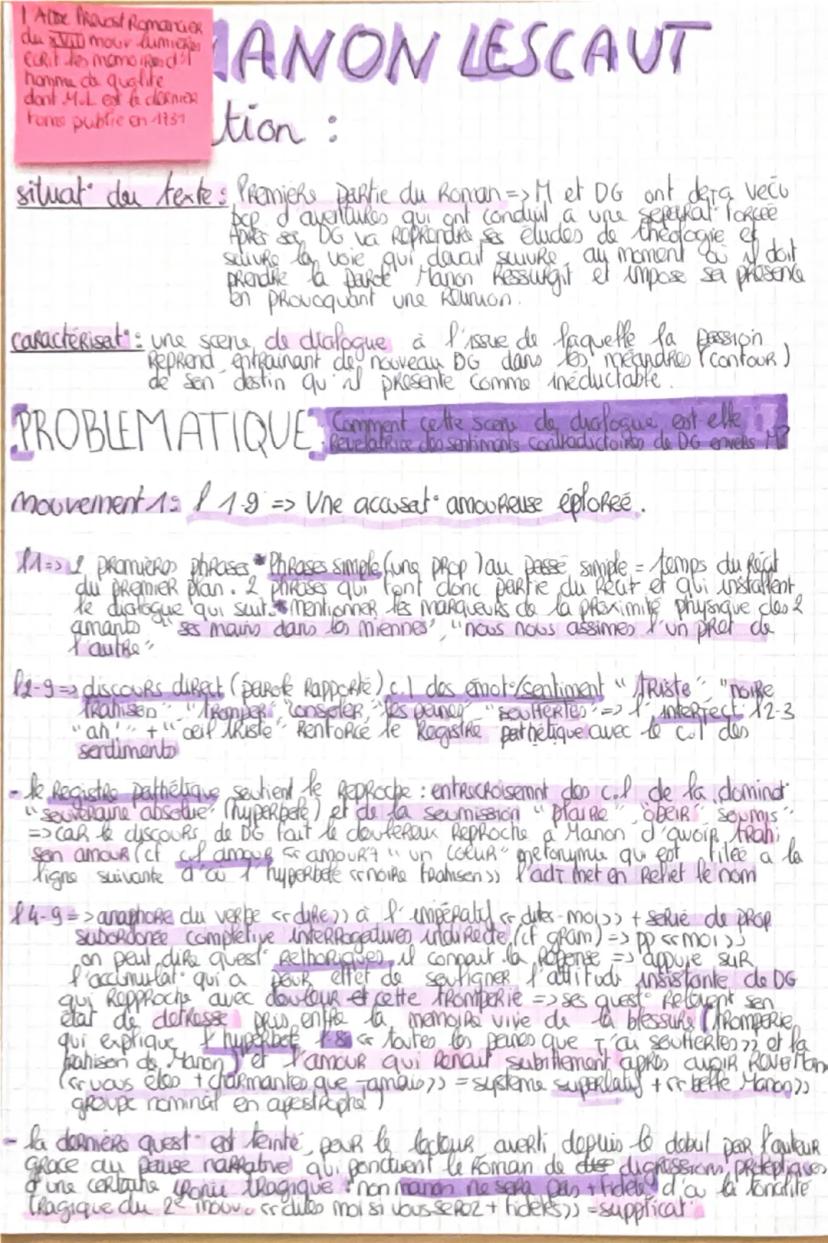 L'Abbé Prévost Romancier
du XVIII mouv lumières
écrit les mémoires d'1
homme de qualité
dont M.L est le dernier
tome publié en 1731
MANON LESCAUT
tion :
situat° du texte : Première partie du Roman => M et DG ont déjà vécu
bcp d'aventures qui ont conduit à une séparat° forcée
Après ça, DG va reprendre ses études de théologie et
suivre la voie qui devait suivre, au moment où il doit
prendre la parole Manon ressurgit et impose sa présence
en provoquant une réunion.
caractérisat° : une scène de dialogue à l'issue de laquelle la passion
reprend, entrainant de nouveau DG dans les méandres (contour)
de son destin qu'il présente comme inéluctable.
PROBLEMATIQUE : Comment cette scène de dialogue est elle
révélatrice des sentiments contradictoires de DG envers M?
Mouvement 1 : l 1-9 => Une accusat° amoureuse éplorée.
l1 => 2 premières phrases * Phrases simple (une prop) au passé simple = temps du récit
du premier plan. 2 phrases qui font donc partie du récit et qui installent
le dialogue qui suit. * mentionner les marqueurs de la proximité physique des 2
amants "ses mains dans les miennes", "nous nous assîmes l'un pret de
l'autre"
l2-9 => discours direct (parole rapporté) c.l des émot°/sentiment "triste", "noire
trahison" "tromper" "consoler" "les peines" "souffertes" => l'interject° l2-3
"ah" + "oeil triste" renforce le registre pathétique avec le c.l des
sentiments
- le registre pathétique soutient le reproche : entrecroisement des c.l de la dominat°
"souveraine absolue" (hyperbole) et de la soumission "plaire", "obéir" "soumis"
=> car le discours de DG fait le douloureux reproche à Manon d'avoir trahi
son amour (cf c.l amour << amour + "un coeur" métonymie qui est filée à la
ligne suivante d'où l'hyperbole << noire trahison >> l'adj met en relief le nom
l4-9 => anaphore du verbe << dire >> à l'impératif << dites-moi >> + série de prop
subordonée complétive interrogatives indirecte (cf gram) => pp << moi >>
on peut dire quest° rethoriques, il connait la réponse => appuie sur
l'accumulat° qui a pour effet de souligner l'attitude insistante de DG
qui reproche avec douleur et cette tromperie => ses quest° relèvent son
état de detresse pris entre la mémoire vive de la blessure (tromperie
qui explique l'hyperbole l-8 << toutes les peines que j'ai souffertes >> et la
trahison de Manon) et l'amour qui renait subitement après avoir revu Manon
(<< vous êtes + charmantes que jamais >> = système superlatif + << belle Manon >>
groupe nominal en apostrophe)
- la dernière quest° est teinté, pour le lecteur averti depuis le début par l'auteur
grace au pause narrative qui ponctuent le roman de digressions proleptiques
d'une certaine ironie tragique : non manon ne sera pas + fidèle d'où la tonalité
tragique du 2e mouv. << dites moi si vous serez + fidèles >> = supplicat°